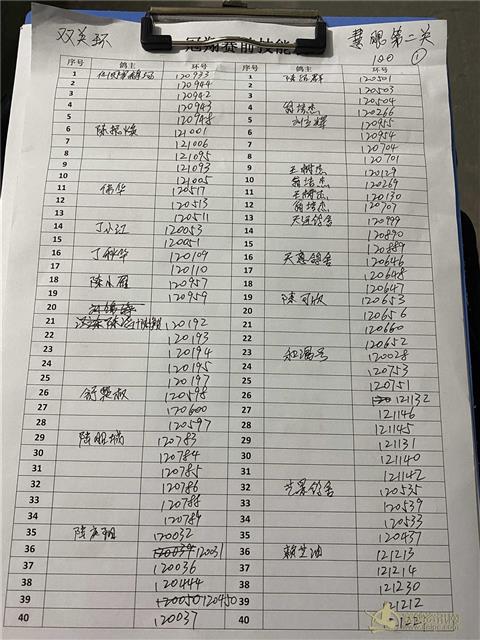 双关环
冠翔赛前技能
慧眼第二关
100 ①
序号 鸽主 环号 序号 鸽主 环号
1 120933 1 120501
2 120944 2 120503
3 120942 3 120504
4 120943 4 翁培杰 120266
5 120948 5 刘吉辉 120955
6 陈据焕 121001 6 120954
7 121006 7 120704
8 121095 8 120701
9 121093 9 王树杰 120129
10 121005 10 翁培杰 120269
11 伟华 120517 11 王树杰 120130
12 120513 12 翁培杰 120707
13 120511 13 天运鸽舍 120999
14 丁小江 120053 14 120890
15 120051 15 120889
16 丁秋华 120109 16 天意鸽舍 120646
17 120110 17 120648
18 陈小雁 120957 18 120647
19 120959 19 陈可欣 120653
20 20 120656
21 120192 21 120660
22 120193 22 120652
23 120194 23 和温号 120028
24 120195 24 120753
25 120197 25 120751
26 舒整椒 120598 26 121132
27 120600 27 121146
28 120597 28 121145
29 陆明瑞 120783 29 121131
30 120784 30 121140
31 120785 31 121142
32 120786 32 艺景鸽舍 120535
33 120788 33 120539
34 120789 34 120533
35 120032 35 120437
36 120039 120031 36 赖芝油 121213
37 120036 37 121214
38 120444 38 121230
39 120050 120450 39 121212
40 120037 40